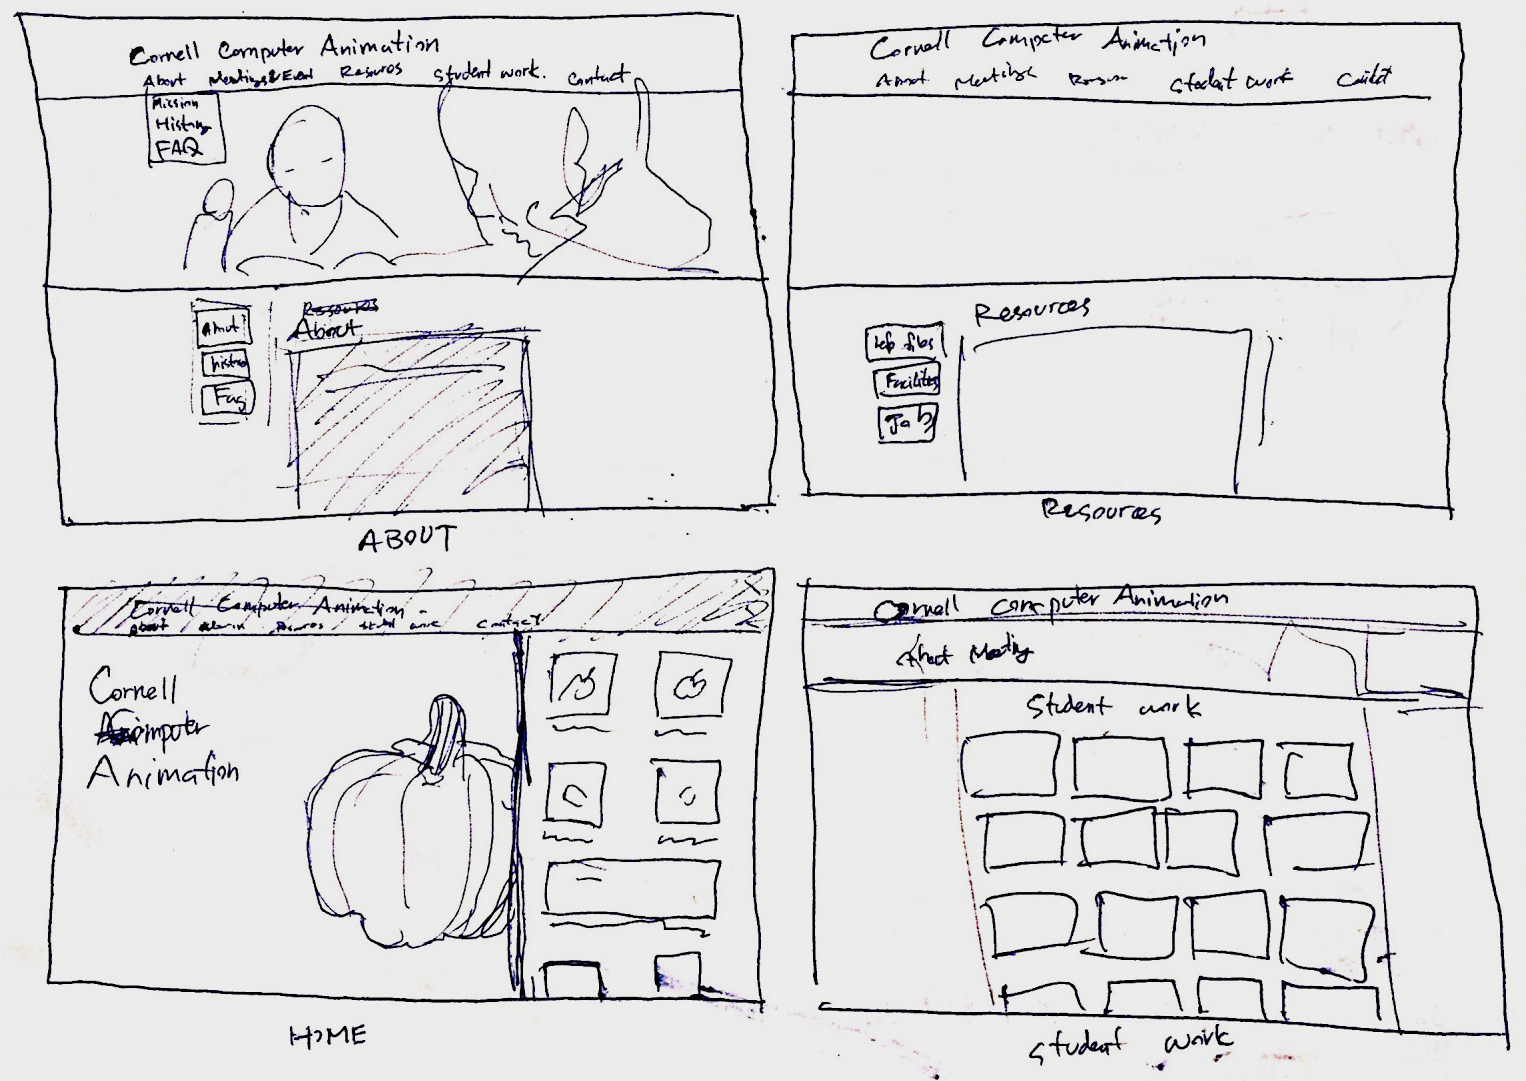 Cornell Computer Animation
About Meetings & Event Resources Student work. Contact
Mission
History
FAQ
Resources
About
About
histo
Faq
ABOUT
Cornell Computer Animation
About Meetings Student work Contact
Resources
Facilities
Job
Resources
Cornell Computer Animation
About Contact
Cornell
Computer
Animation
HOME
Cornell Computer Animation
About Meeting
Student work
Student work